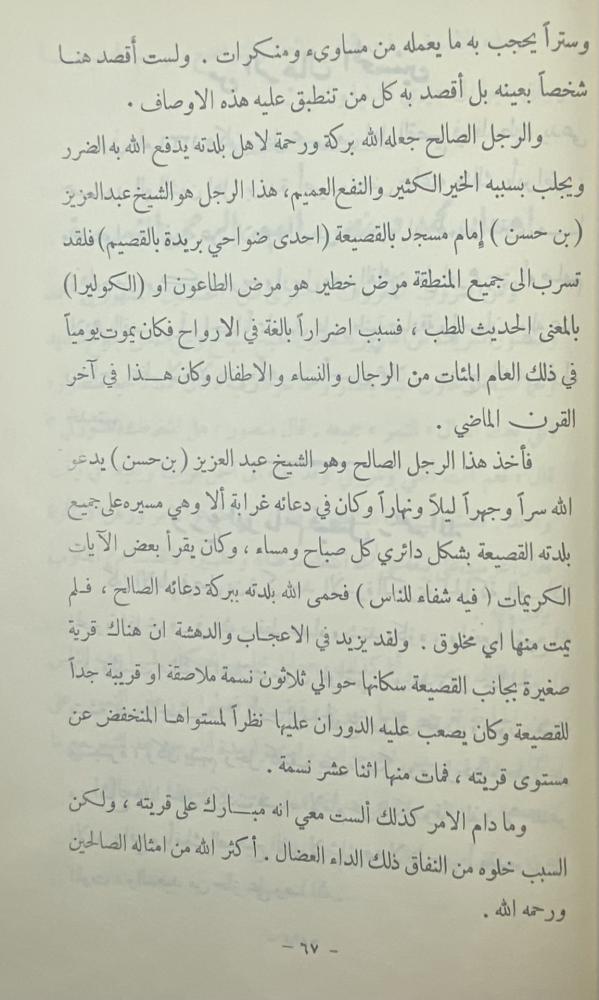 وستراً يحجب به ما يعمله من مساوىء ومنكرات . ولست أقصد هنـا
شخصاً بعينه بل أقصد به كل من تنطبق عليه هذه الاوصاف .
والرجل الصالح جعله الله بركة ورحمة لاهل بلدته يدفع الله به الضرر
ويجلب بسببه الخير الكثير والنفع العميم، هذا الرجل هو الشيخ عبد العزيز
( بن حسن ) إمام مسجد بالقصيعة (احدى ضواحي بريدة بالقصيم) فلقد
تسرب الى جميع المنطقة مرض خطير هو مرض الطاعون او (الكوليرا)
بالمعنى الحديث للطب ، فسبب اضراراً بالغة في الارواح فكان يموت يومياً
في ذلك العام المئات من الرجال والنساء والاطفال وكان هـــذا في آخر
القرن الماضي .
فأخذ هذا الرجل الصالح وهو الشيخ عبد العزيز ( بن حسن ) يدعو
الله سراً وجهراً ليلاً ونهاراً وكان في دعائه غرابة ألا وهي مسيره على جميع
بلدته القصيعة بشكل دائري كل صباح ومساء ، وكان يقرأ بعض الآيات
الكريمات ( فيه شفاء للناس ) فحمى الله بلدته ببركة دعائه الصالح ، فـلم
يمت منها اي مخلوق . ولقد يزيد في الاعجـاب والدهشة ان هناك قرية
صغيرة بجانب القصيعة سكانها حوالي ثلاثون نسمة ملاصقة او قريبة جداً
للقصيعة وكان يصعب عليه الدوران عليها نظراً لمستواهـا المنخفض عن
مستوى قريته ، فمات منها اثنا عشر نسمة .
وما دام الامر كذلك ألست معي انه مبــارك على قريته ، ولكن
السبب خلوه من النفاق ذلك الداء العضال . أكثر الله من امثاله الصالحين
ورحمه الله .
- ٦٧ -